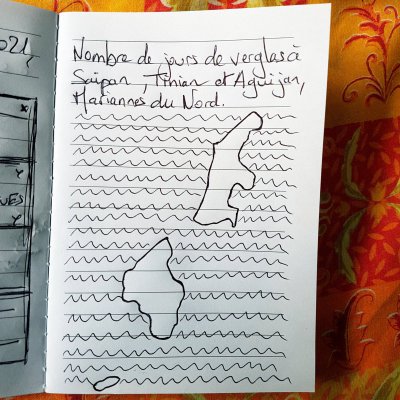 021
UES
Nombre de jours de verglas à
Saipan, Tinian et Aguijan,
Mariannes du Nord.